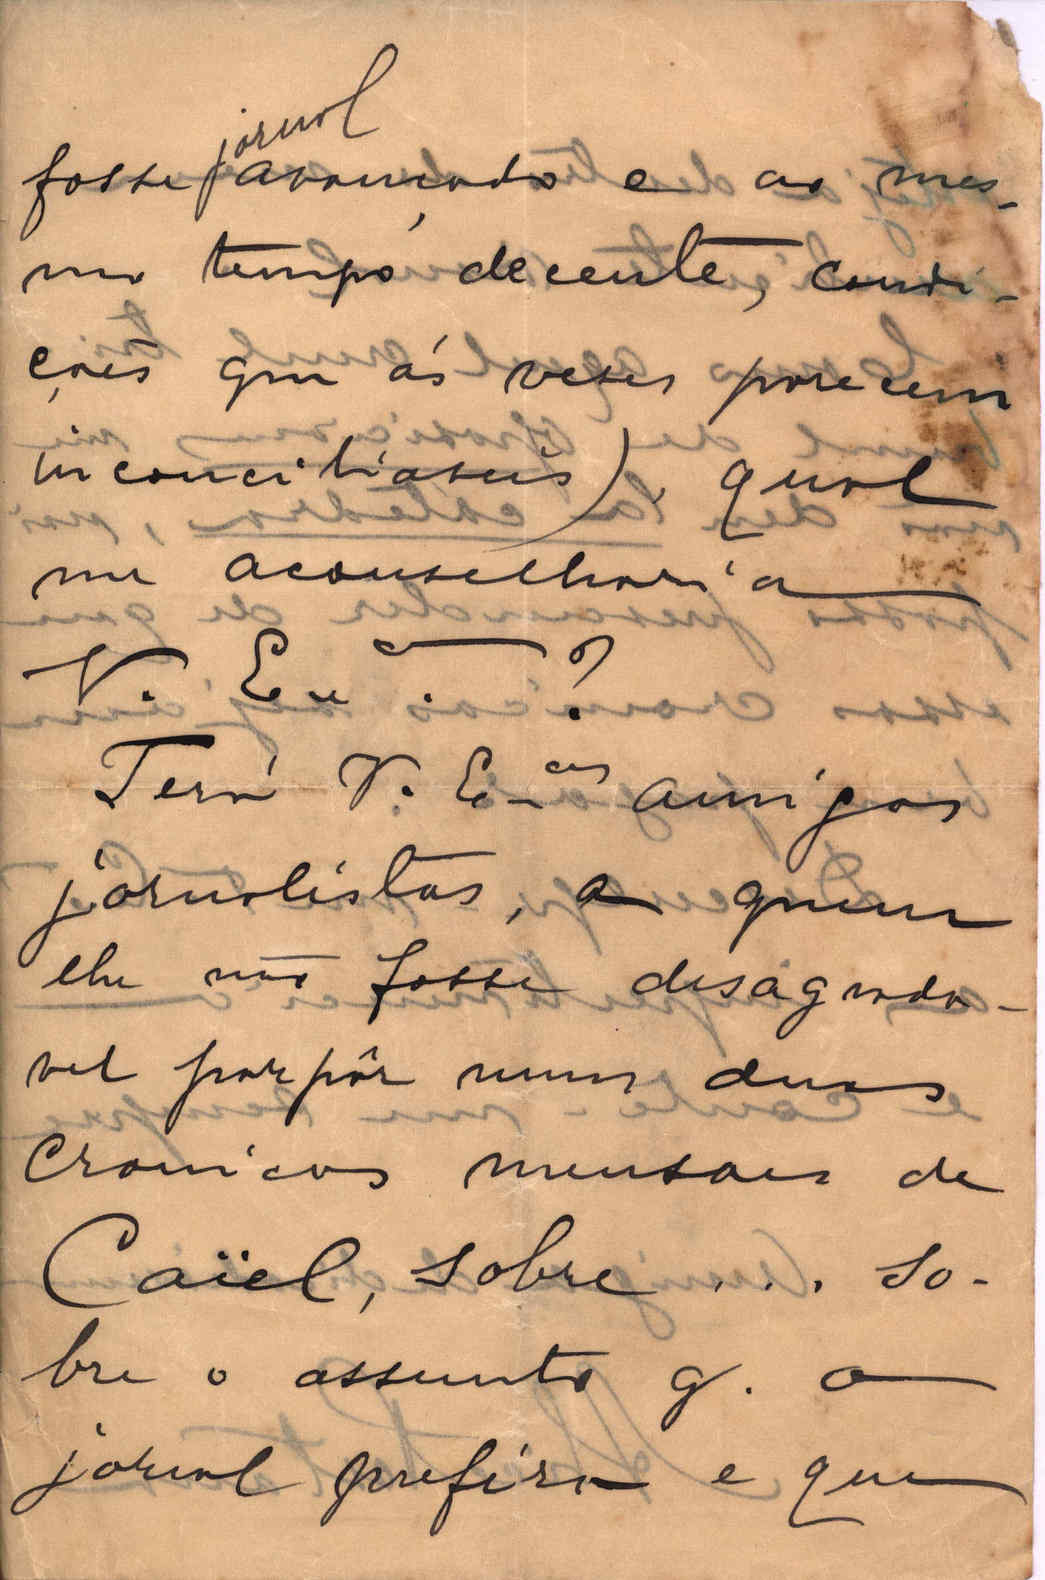 jornal
fosse avançado e ao mes-
mo tempo decente, condi-
ções que ás vezes parecem
inconciliaveis), qual
me aconselharia
V. Ex.ª?
Terá V. E.cia amigos
jornalistas, a quem
lhe não fosse desagrada-
vel porpôr umas duas
cronicas mensaes de
Caïel, sobre . . . so-
bre o assunto q. o
jornal prefira e que